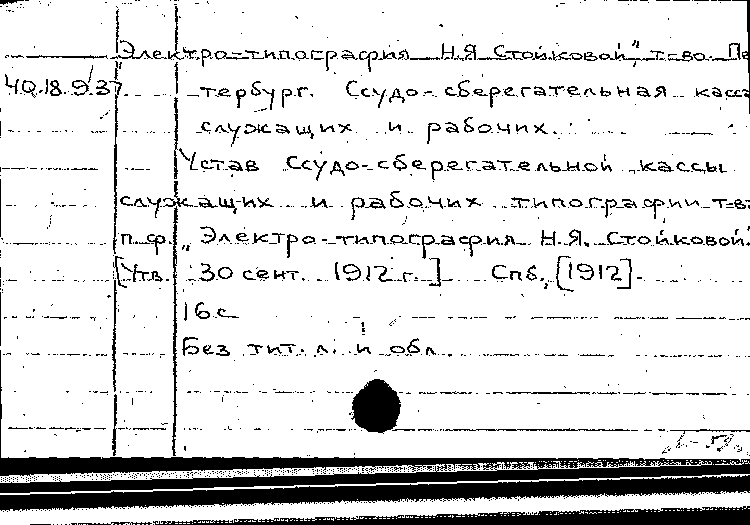 „Электро-типография Н.Я Стойковой", т-во. Пе
40.18.9.37. тербург. Ссудо-сберегательная касса
служащих и рабочих.
Устав Ссудо-сберегательной кассы
служащих и рабочих типографии т-ва
п. ф. „Электро-типография Н.Я. Стойковой."
[Утв. 30 сент. 1912 г.] Спб., [1912].
16 с
Без тит. л. и обл.